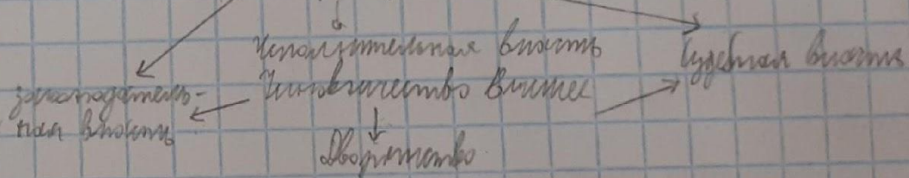 Исполнительная власть
Судебная власть
законодатель-
ная власть
Чиновничество высшее
Дворянство